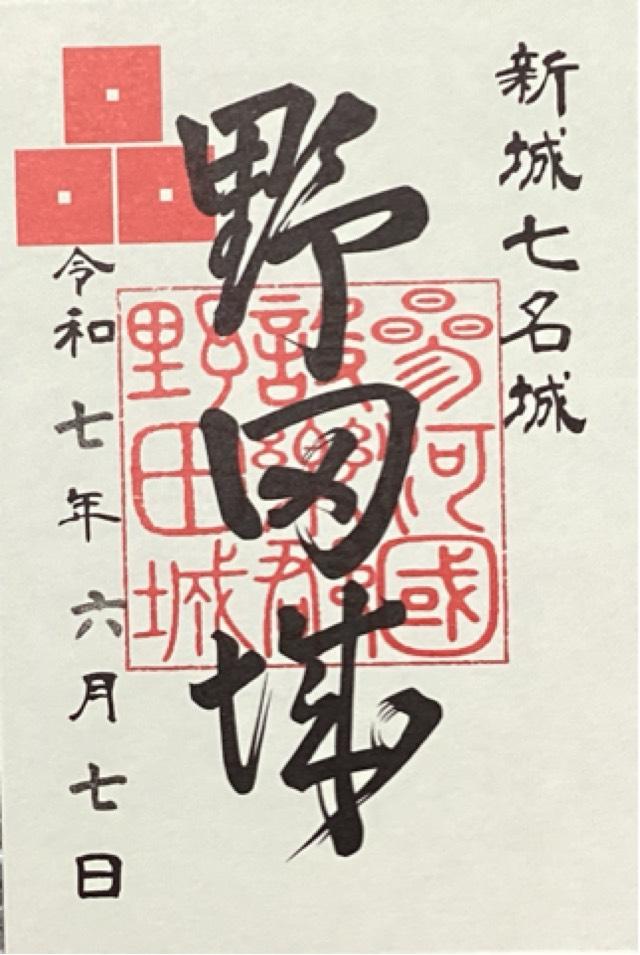 新城七名城
野田城
参河國
設樂郡
野田城
令和七年六月七日